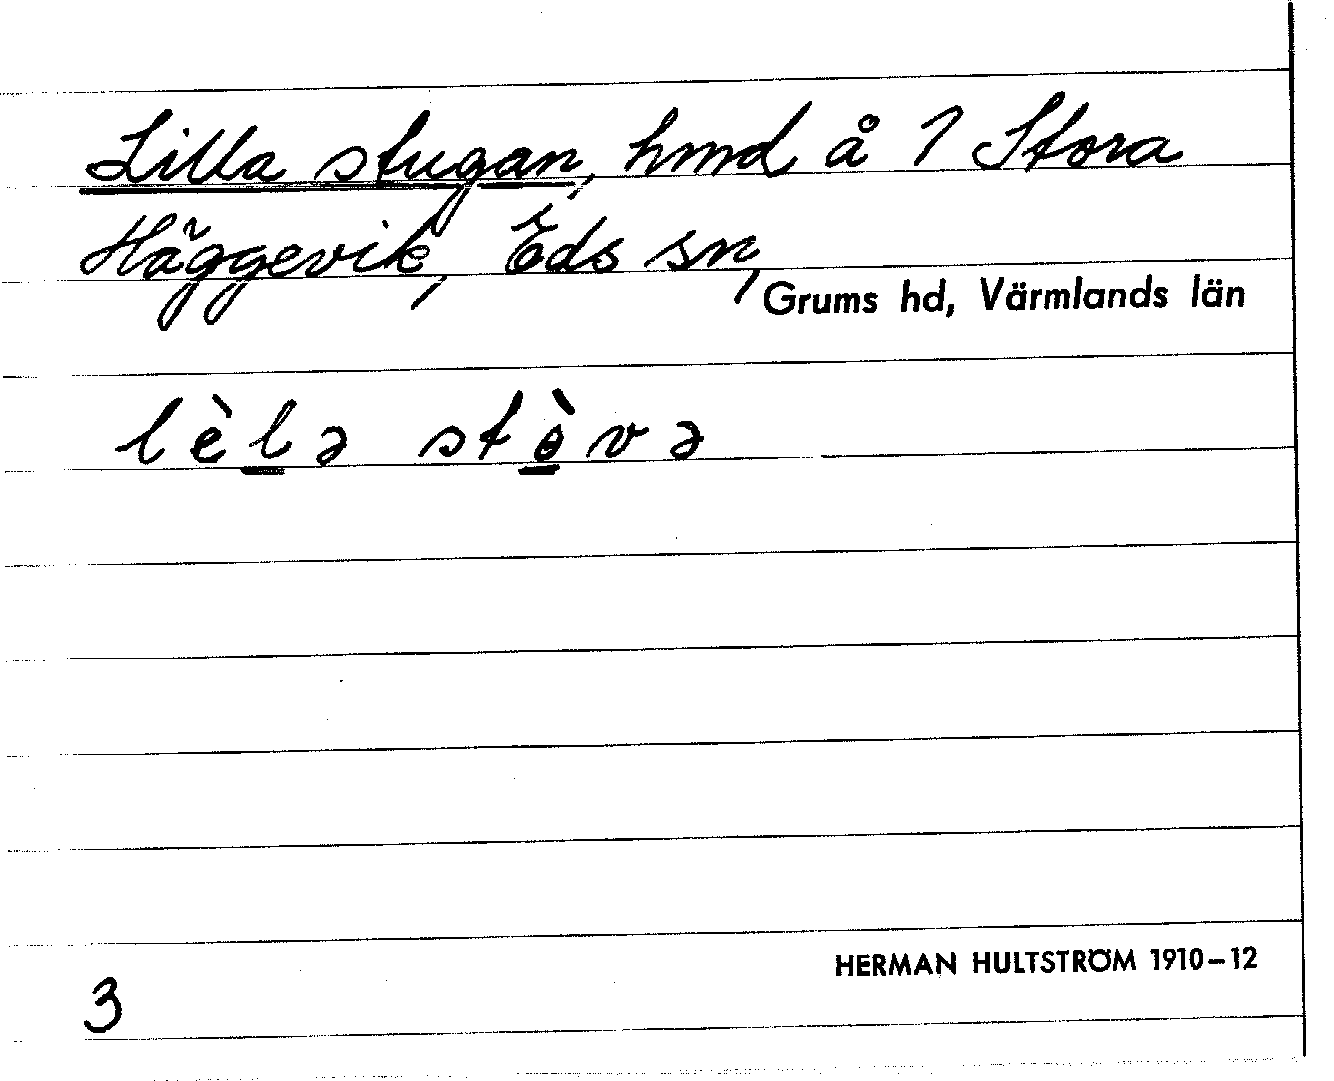 Lilla stugan, hmd å 1 Stora
Häggevik, Eds sn,
Grums hd, Värmlands län
lèlə stɵ̀və
HERMAN HULTSTRÖM 1910–12
3